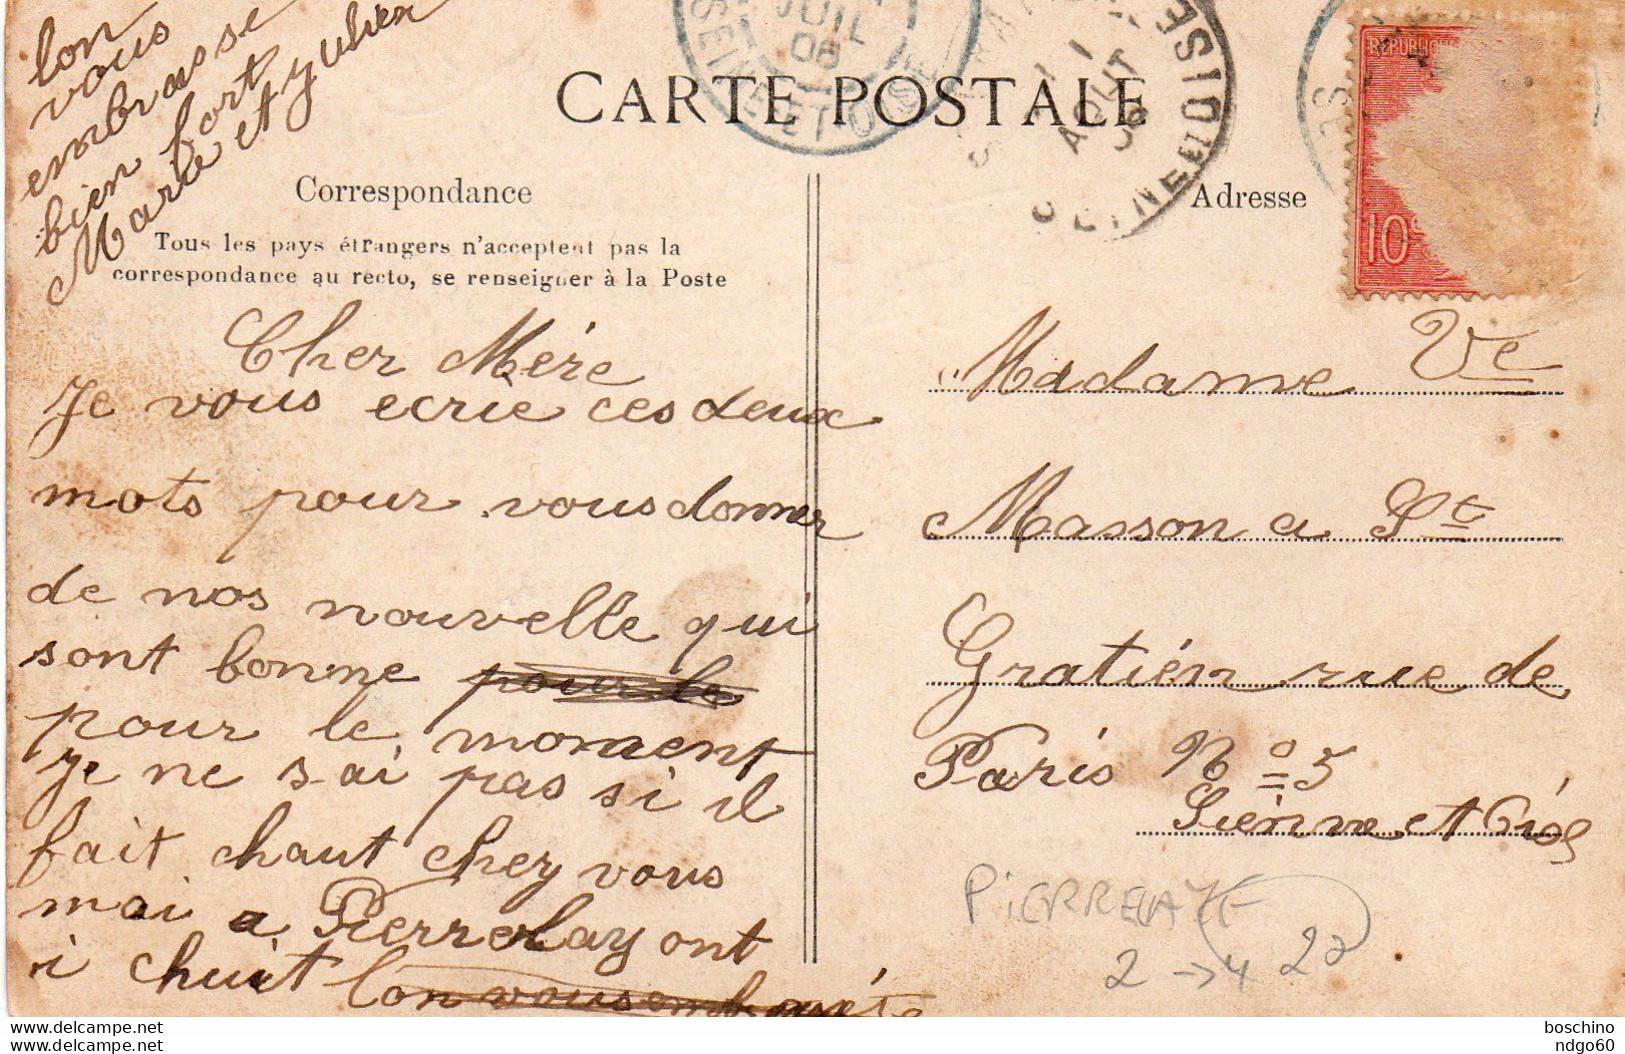 lon
vous
embrasse
bien fort
Marie et Julien
JUIL
08
SEINE-ET-OISE
AOUT
08
SEINE-ET-OISE
REPUBLIQUE
10c
CARTE POSTALE
Correspondance
Tous les pays étrangers n'acceptent pas la
correspondance au recto, se renseigner à la Poste
Adresse
Cher Mére
Je vous ecrie ces deux
mots pour vous donner
de nos nouvelle qui
sont bonne pour le
pour le moment
Je ne sai pas si il
fait chaut chez vous
mai a Pierrelay ont
i chuit lon vous embrasse
Madame Ve
Masson a St
Gratién rue de
Paris No 5
Siénne et Oios
PiERRELAYE
2 → 4 22
boschino
ndgo60